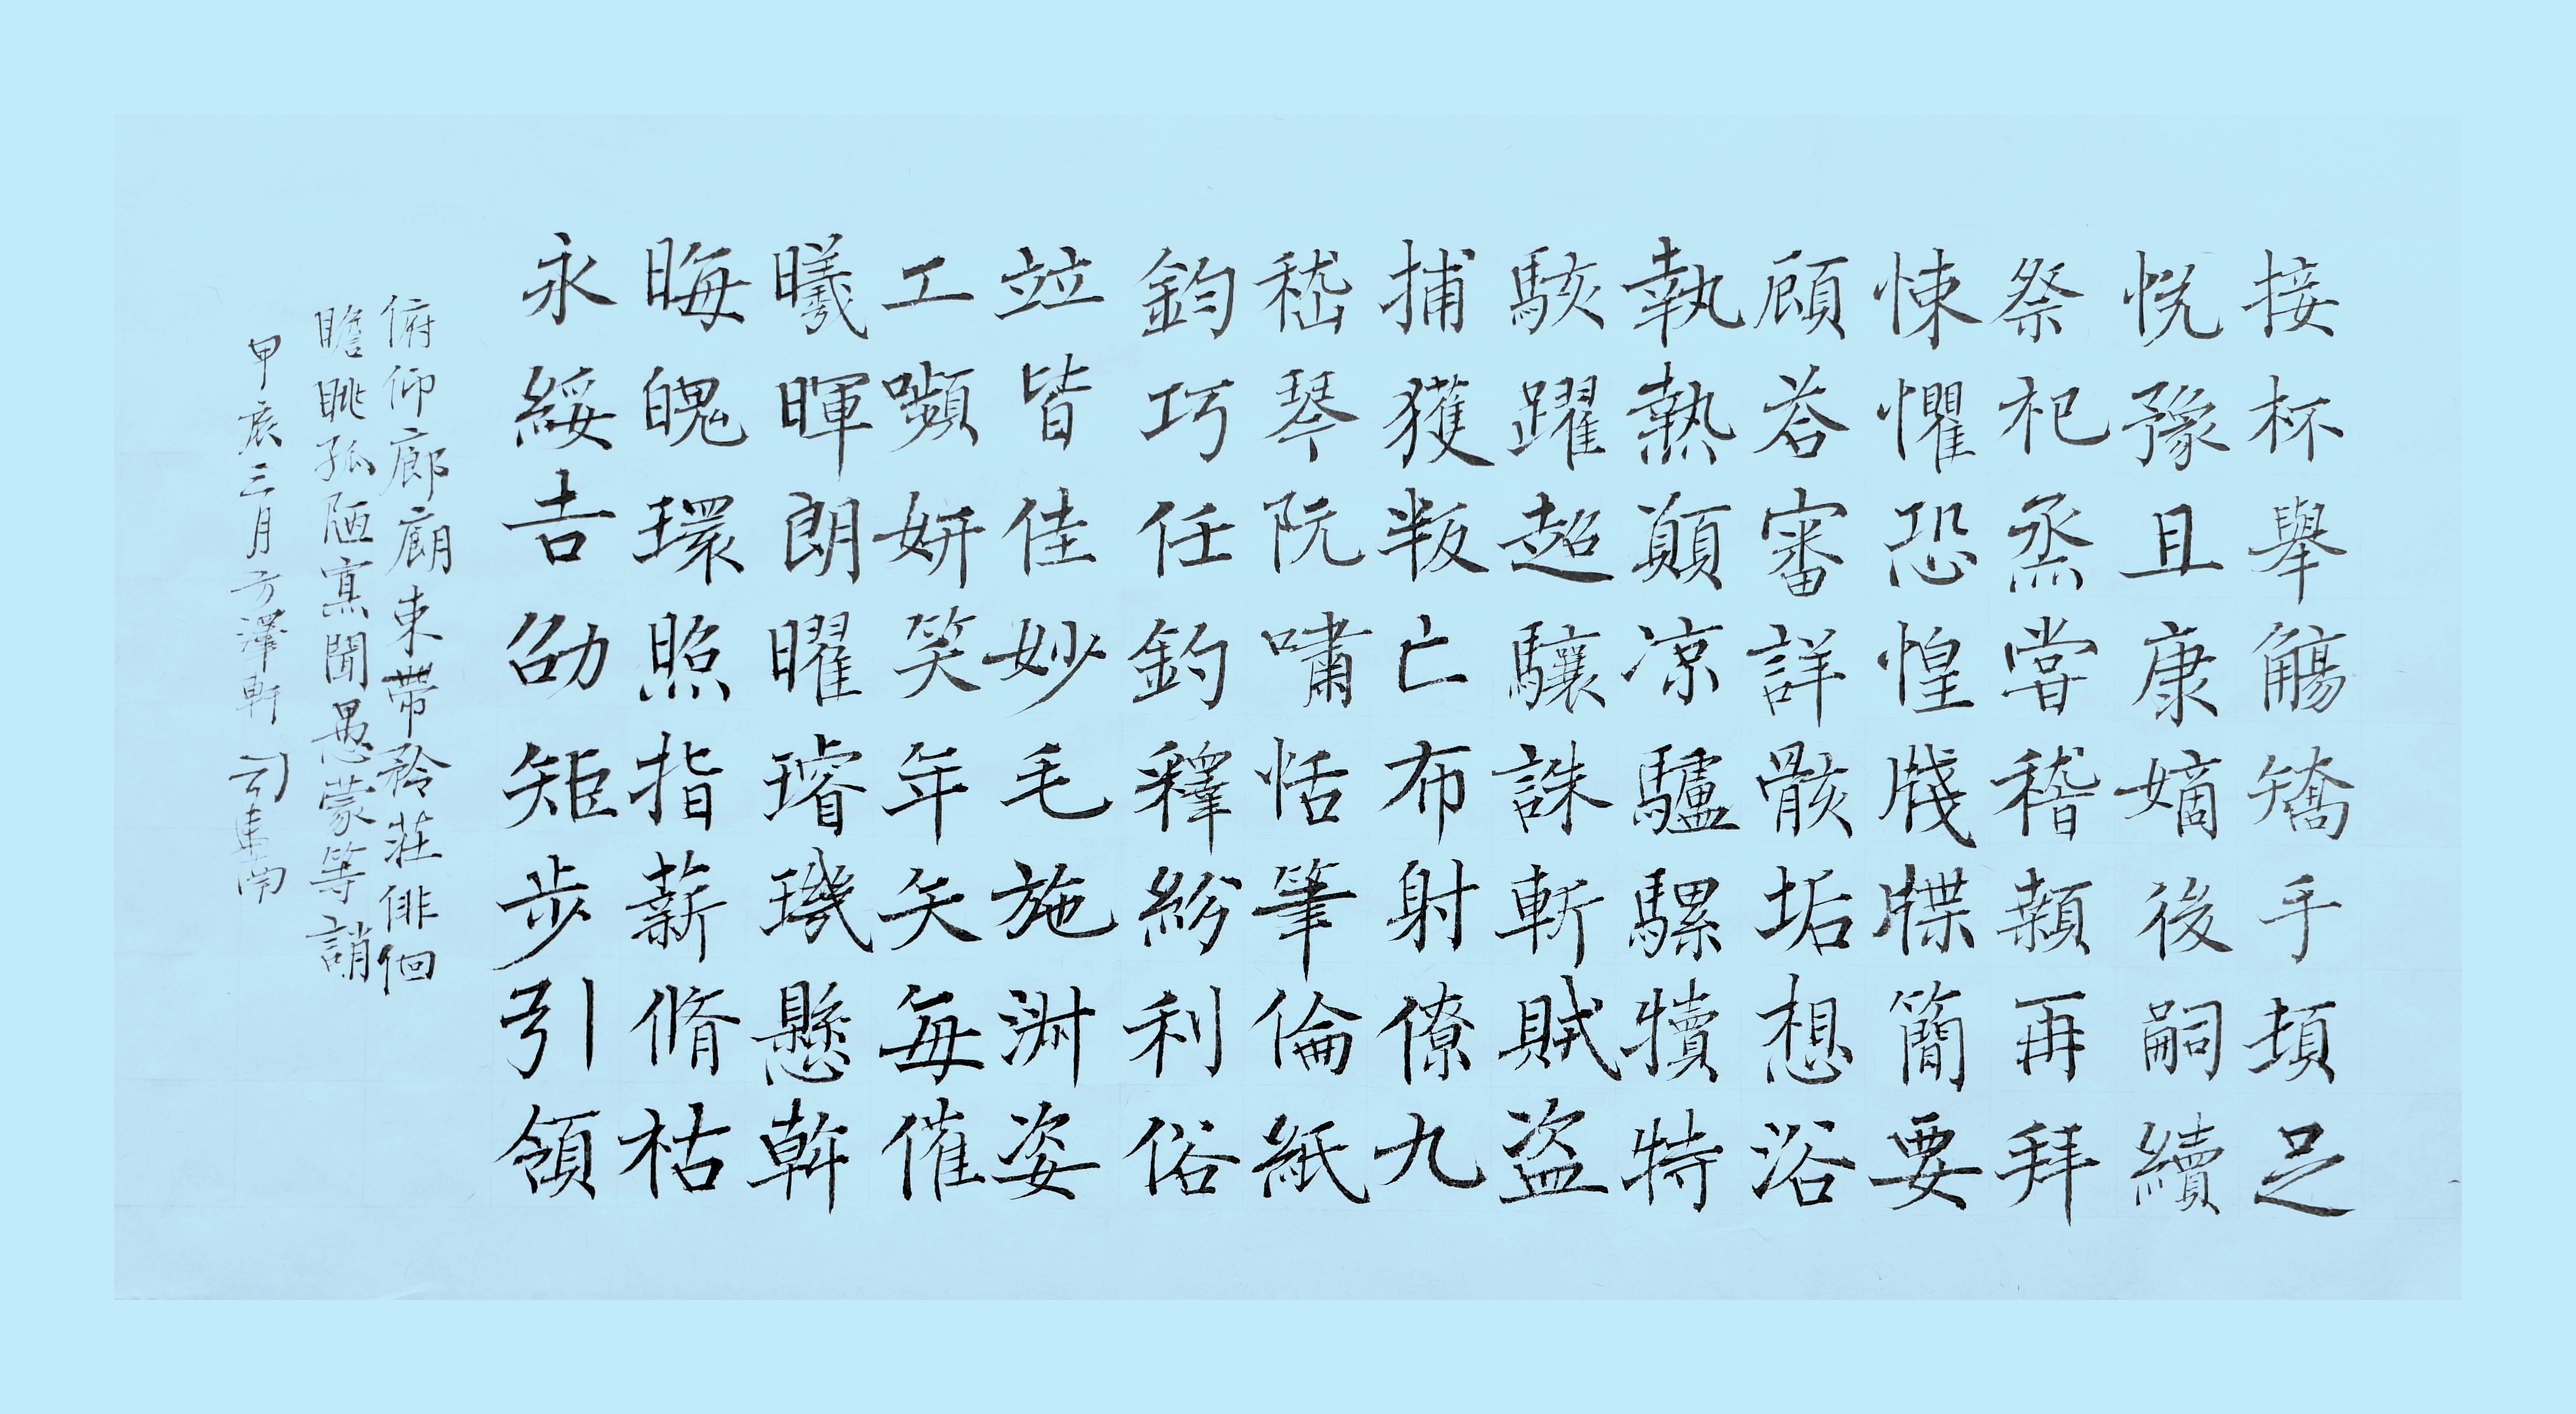 接杯舉觴矯手頓足
悅豫且康嫡後嗣續
祭祀烝嘗稽顙再拜
悚懼恐惶牋牒簡要
顧答審詳骸垢想浴
執熱願涼驢騾犢特
駭躍超驤誅斬賊盜
捕獲叛亡布射僚丸
嵇琴阮嘯恬筆倫紙
鈞巧任釣釋紛利俗
竝皆佳妙毛施淑姿
工嚬妍笑年矢每催
曦暉朗曜璿璣懸斡
晦魄環照指薪脩祜
永綏吉劭矩步引領
俯仰廊廟束帶矜莊徘徊
瞻眺孤陋寡聞愚蒙等誚
甲辰三月方澤軒司馬南